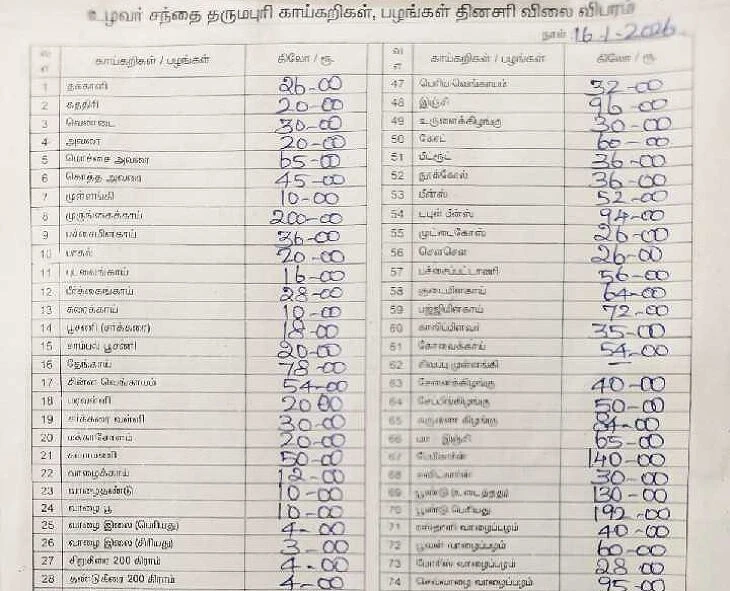 உழவர் சந்தை தருமபுரி காய்கறிகள், பழங்கள் தினசரி விலை விபரம்
நாள் 16-1-2026
வ எ காய்கறிகள் / பழங்கள் கிலோ / ரூ.
1 தக்காளி 26-00
2 கத்திரி 20-00
3 வெண்டை 30-00
4 அவரை 20-00
5 மொச்சை அவரை 65-00
6 கொத்த அவரை 45-00
7 முள்ளங்கி 10-00
8 முருங்கைக்காய் 200-00
9 பச்சைமிளகாய் 36-00
10 பாகல் 20-00
11 புடலைங்காய் 16-00
12 பீர்க்கைங்காய் 28-00
13 சுரைக்காய் 10-00
14 பூசணி (சர்க்கரை) 18-00
15 சாம்பல் பூசணி 20-00
16 தேங்காய் 78-00
17 சின்ன வெங்காயம் 54-00
18 பரவள்ளி 2000
19 சர்க்கரை வள்ளி 30-00
20 மக்காசோளம் 20-00
21 50-00
22 வாழைக்காய் 12-00
23 வாழைதண்டு 10-00
24 வாழை பூ 10-00
25 வாழை இலை (பெரியது) 4-00
26 வாழை இலை (சிரியது) 3-00
27 சிறுகீரை 200 கிராம் 4-00
28 தண்டுகீரை 200 கிராம் 4-00
வ எ காய்கறிகள் / பழங்கள் கிலோ / ரூ.
47 பெரிய வெங்காயம் 32-00
48 இஞ்சி 96-00
49 உருளைக்கிழங்கு 30-00
50 கேரட் 60-00
51 பீட்ரூட் 36-00
52 நூக்கோல் 36-00
53 பீன்ஸ் 52-00
54 டபுள் பீன்ஸ் 94-00
55 முட்டைகோஸ் 26-00
56 சௌசௌ 26-00
57 பச்சைப்பட்டாணி 56-00
58 குடைமிளகாய் 64-00
59 பஜ்ஜிமிளகாய் 72-00
60 காலிபிளவர் 35-00
61 கோவைக்காய் 54-00
62 சிவப்பு முள்ளங்கி –
63 சேனைக்கிழங்கு 40-00
64 சேப்பங்கிழங்கு 50-00
65 கருணை கிழங்கு 84-00
66 மா இஞ்சி 65-00
67 பேபிகார்ன் 140-00
68 30-00
69 பூண்டு (உடைத்தது) 130-00
70 பூண்டு பெரியது 192-00
71 ரஸ்தாளி வாழைப்பழம் 40-00
72 பூவன் வாழைப்பழம் 60-00
73 மோரிஸ் வாழைப்பழம் 28-00
74 செவ்வாழை வாழைப்பழம் 95-00